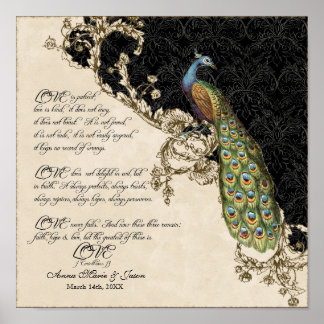 LOVE is patient,
love is kind, it does not envy,
it does not boast. It is not proud,
it is not rude, it is not easily angered,
it keeps no record of wrongs.
LOVE does not delight in evil but
in truth. It always protects, always trusts,
always rejoices, always hopes, always perseveres.
LOVE never fails. And now these three remain:
faith, hope & love, but the greatest of these is
LOVE
1 Corinthians 13
Anna Marie & Jason
March 14th, 20XX